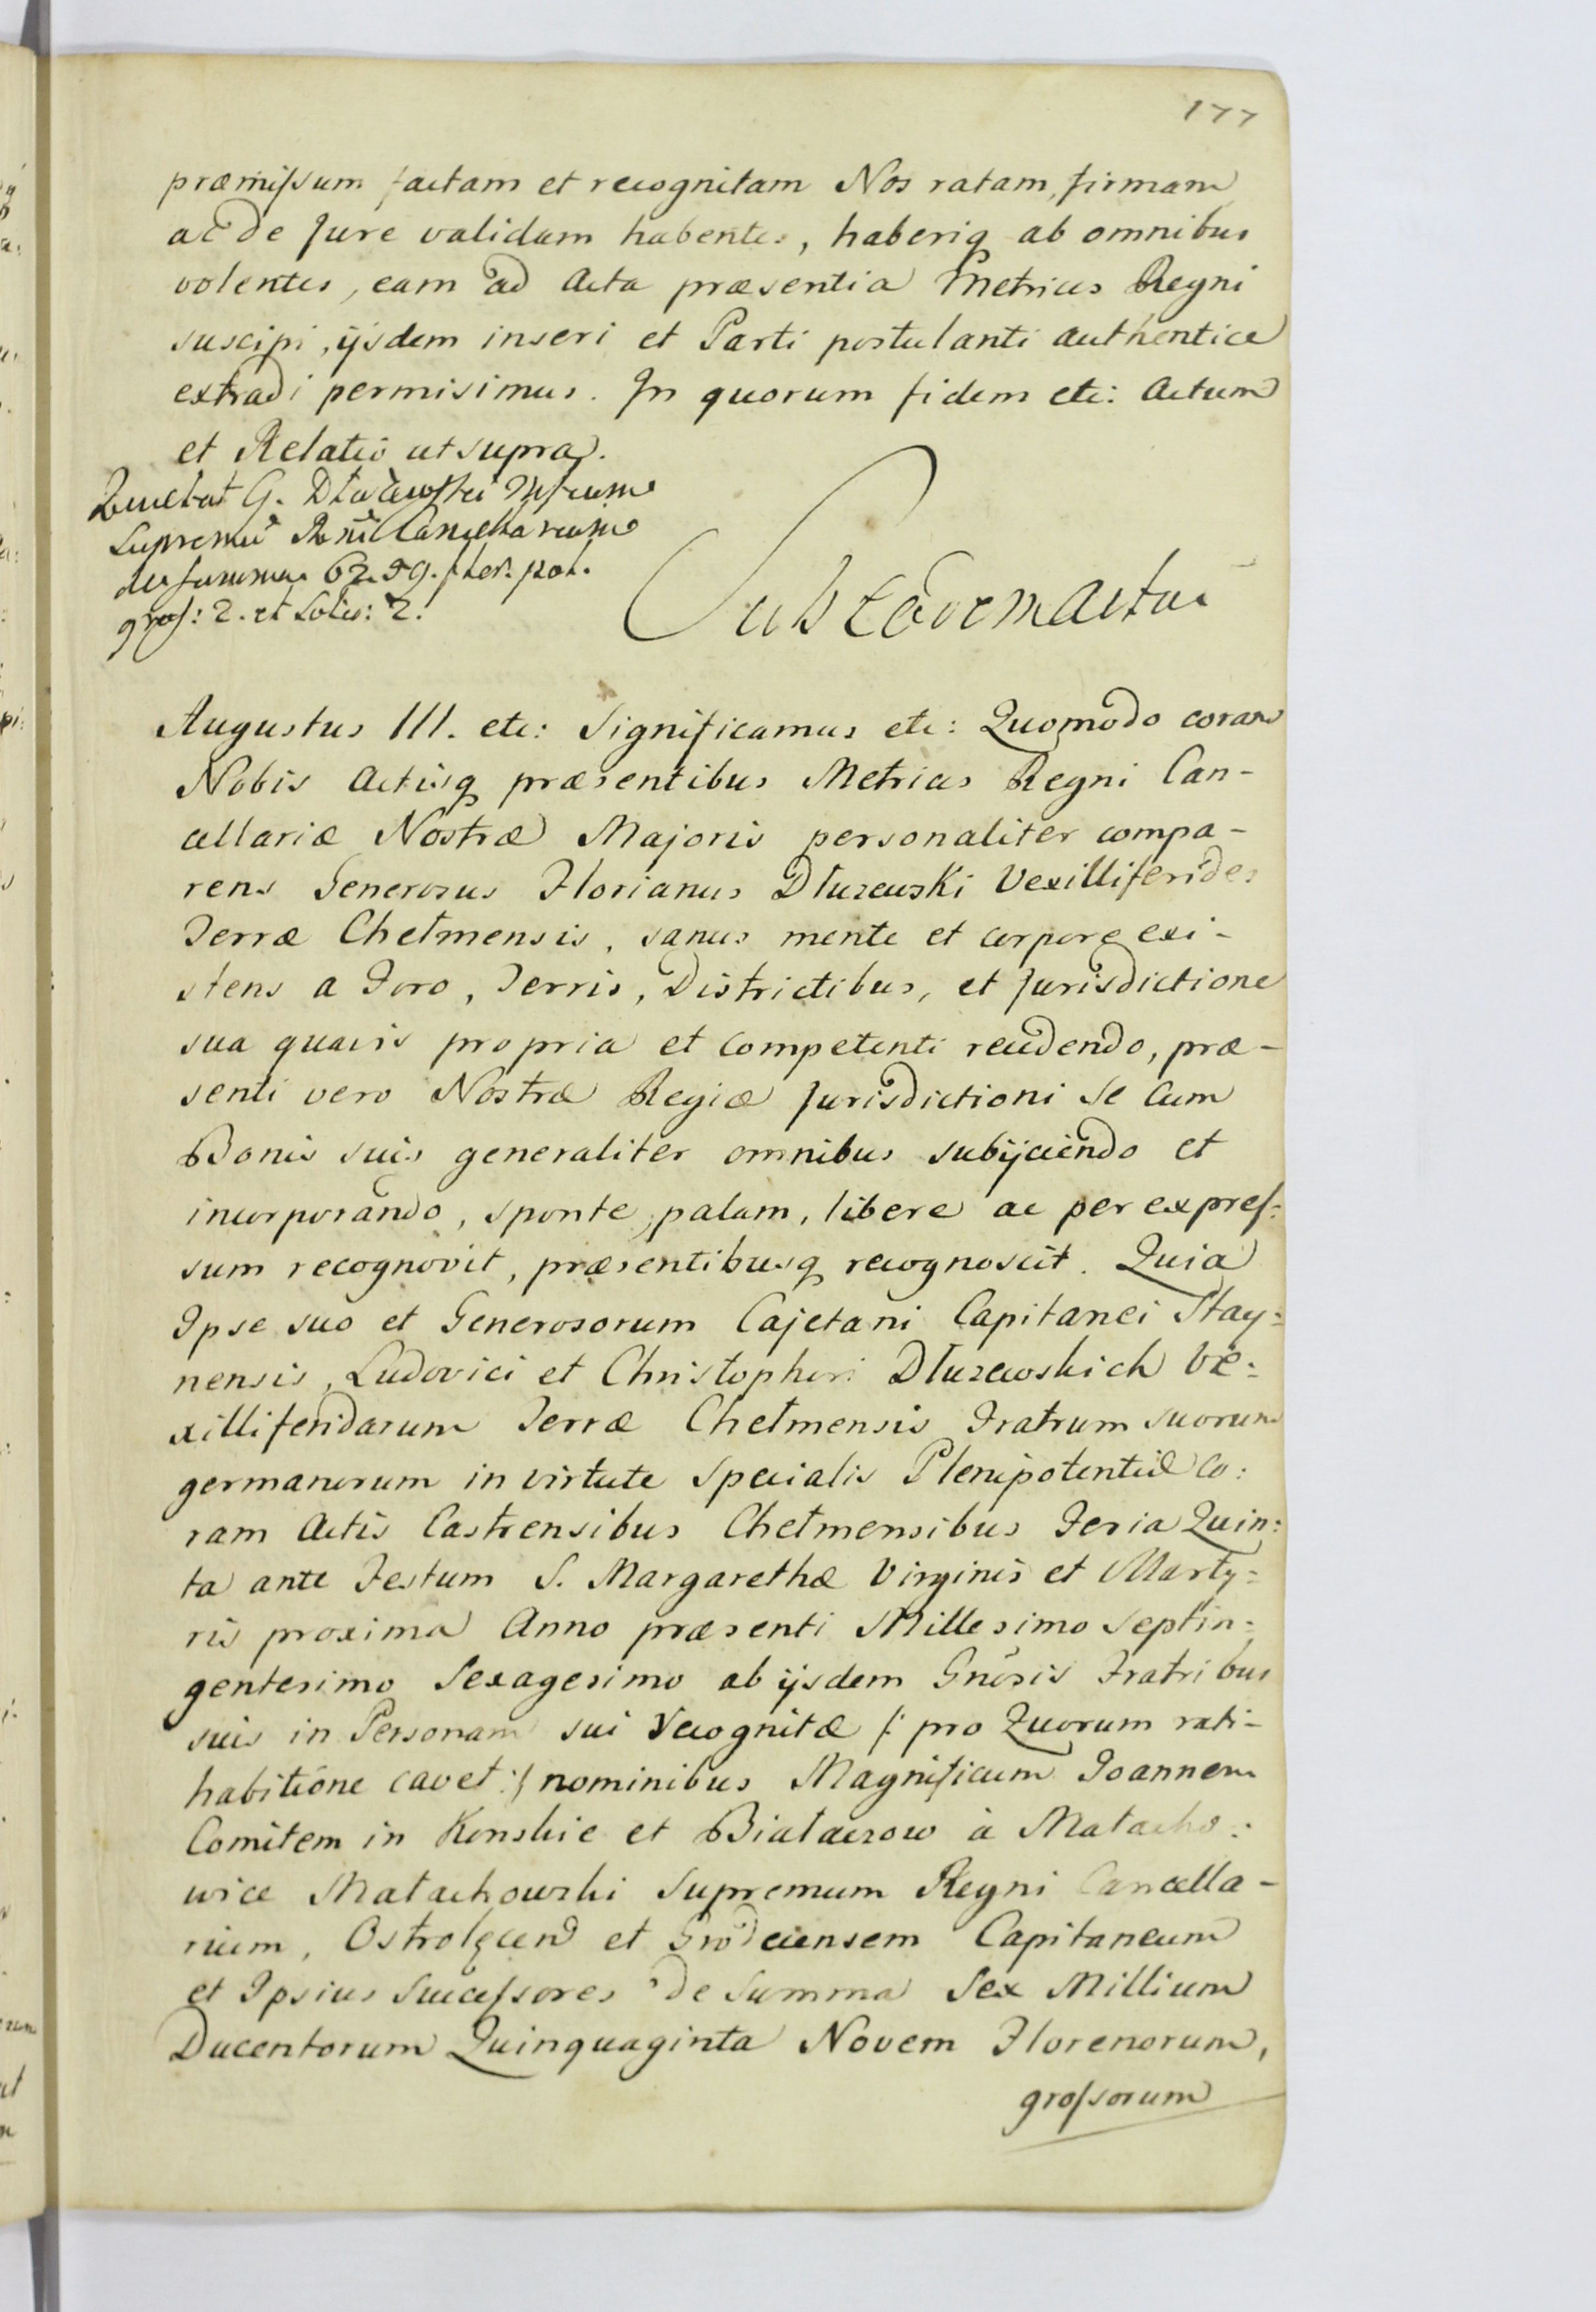 177
præmissum factam et recognitam Nos ratam, firmam
ac de Jure validam habentes, haberiq ab omnibus
volentes, eam ad Acta præsentia Metrices Regni
suscipi, ijsdem inseri et Parti postulanti authentice
extradi permisimus. In quorum fidem etc: Actum
et Relatio ut supra.
Quietat G. Dłużewski Illustrum
Supremū Rni Cancellarium
de summa 6259. flor. pol.
gros: 2. et Solid: 2.
Sub eodem actu
Augustus III. etc: Significamus etc: Quomodo coram
Nobis Actisq præsentibus Metrices Regni Can-
cellariæ Nostræ Majoris personaliter compa-
rens Generosus Florianus Dłuzewski Vexilliferides
Terræ Chełmensis, sanus mente et corpore exi-
stens a Foro, Terris, Districtibus, et Jurisdictione
sua quavis propria et competenti recedendo, præ-
senti vero Nostræ Regiæ Jurisdictioni se cum
Bonis suis generaliter omnibus subijciendo et
incorporando, sponte, palam, libere ac per expres:
sum recognovit, præsentibusq recognoscit. Quia
Ipse suo et Generosorum Cajetani Capitanei Stay:
nensis, Ludovici et Christophori Dłuzewskich Ve:
xilliferidarum Terræ Chełmensis Fratrum suorum
germanorum in virtute specialis Plenipotentiæ co:
ram Actis Castrensibus Chełmensibus Feria Quin:
ta ante Festum S. Margarethæ Virginis et Marty:
ris proxima Anno præsenti Millesimo Septin:
gentesimo Sexagesimo ab ijsdem Gnosis Fratribus
suis in Personam sui recognitæ /: pro Quorum rati-
habitione cavet :/ nominibus Magnificum Joannem
Comitem in Konskie et Białaczow à Małacho:
wice Małachowski Supremum Regni Cancella-
rium, Ostrołęcen et Grodecensem Capitaneum
et Ipsius Successores de Summa Sex Millium
Ducentorum Quinquaginta Novem Florenorum,
grossorum